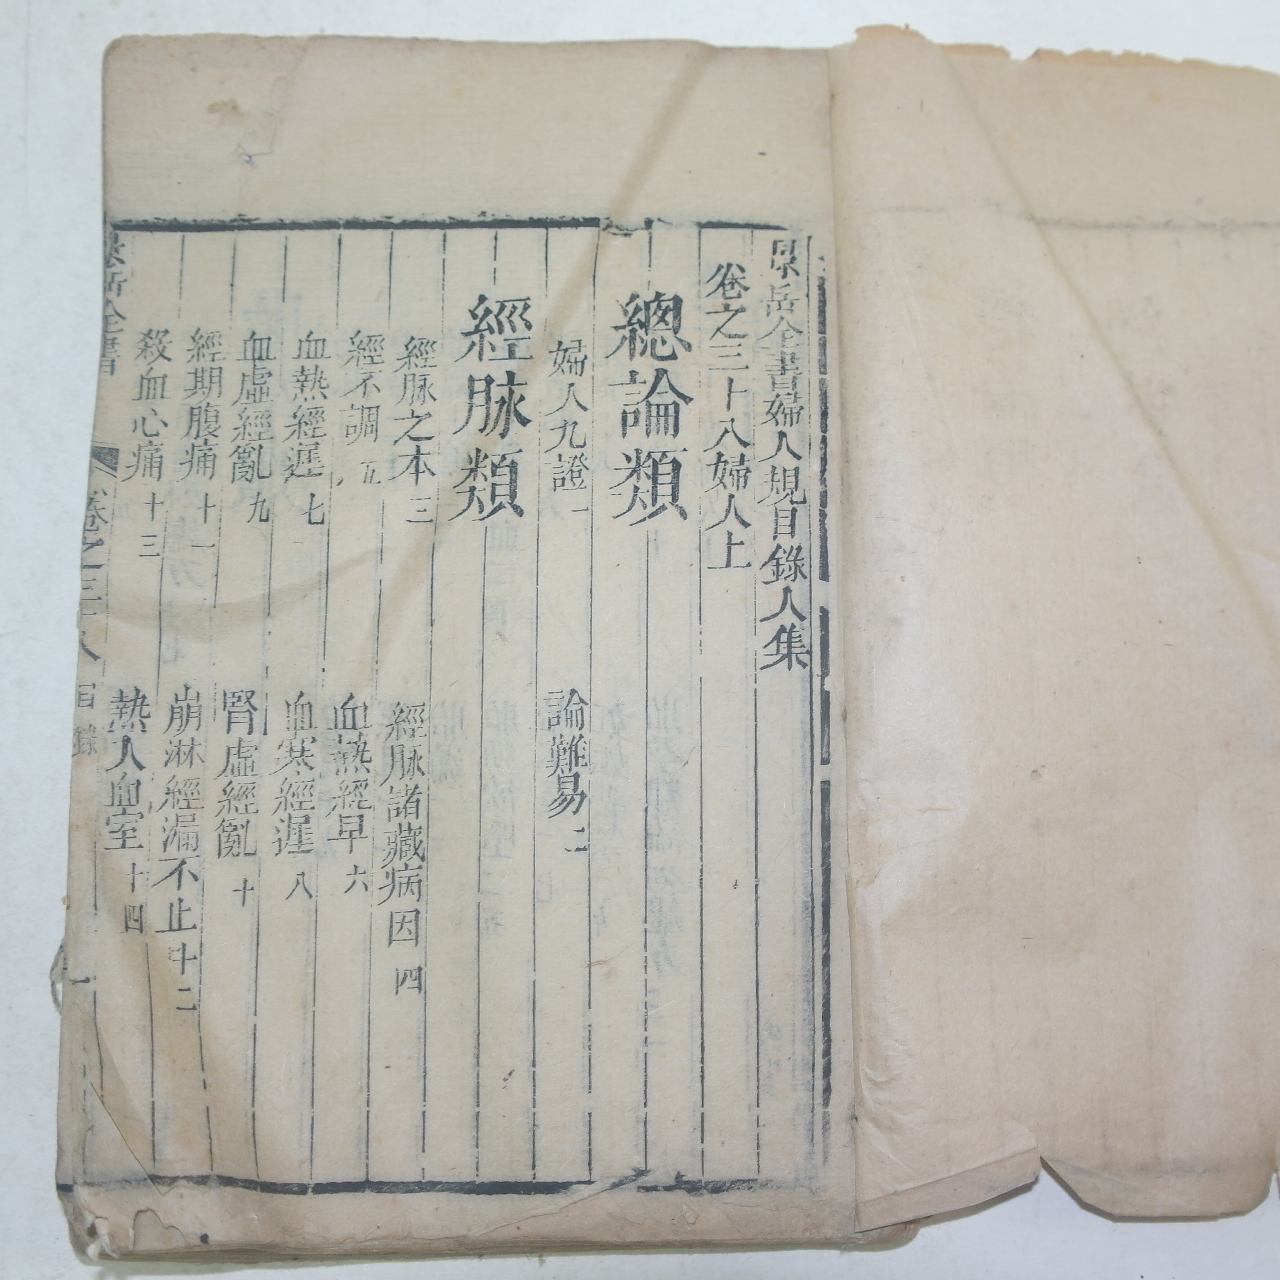 景岳全書婦人規目錄人集
卷之三十八婦人上
總論類
婦人九證一 論難易二
經脉類
經脉之本三 經脉諸藏病因四
經不調五 血熱經早六
血熱經遲七 血寒經遲八
血虛經亂九 腎虛經亂十
經期腹痛十一 崩淋經漏不止十二
殺血心痛十三 熱入血室十四
景岳全書 卷之三十八 目錄 一